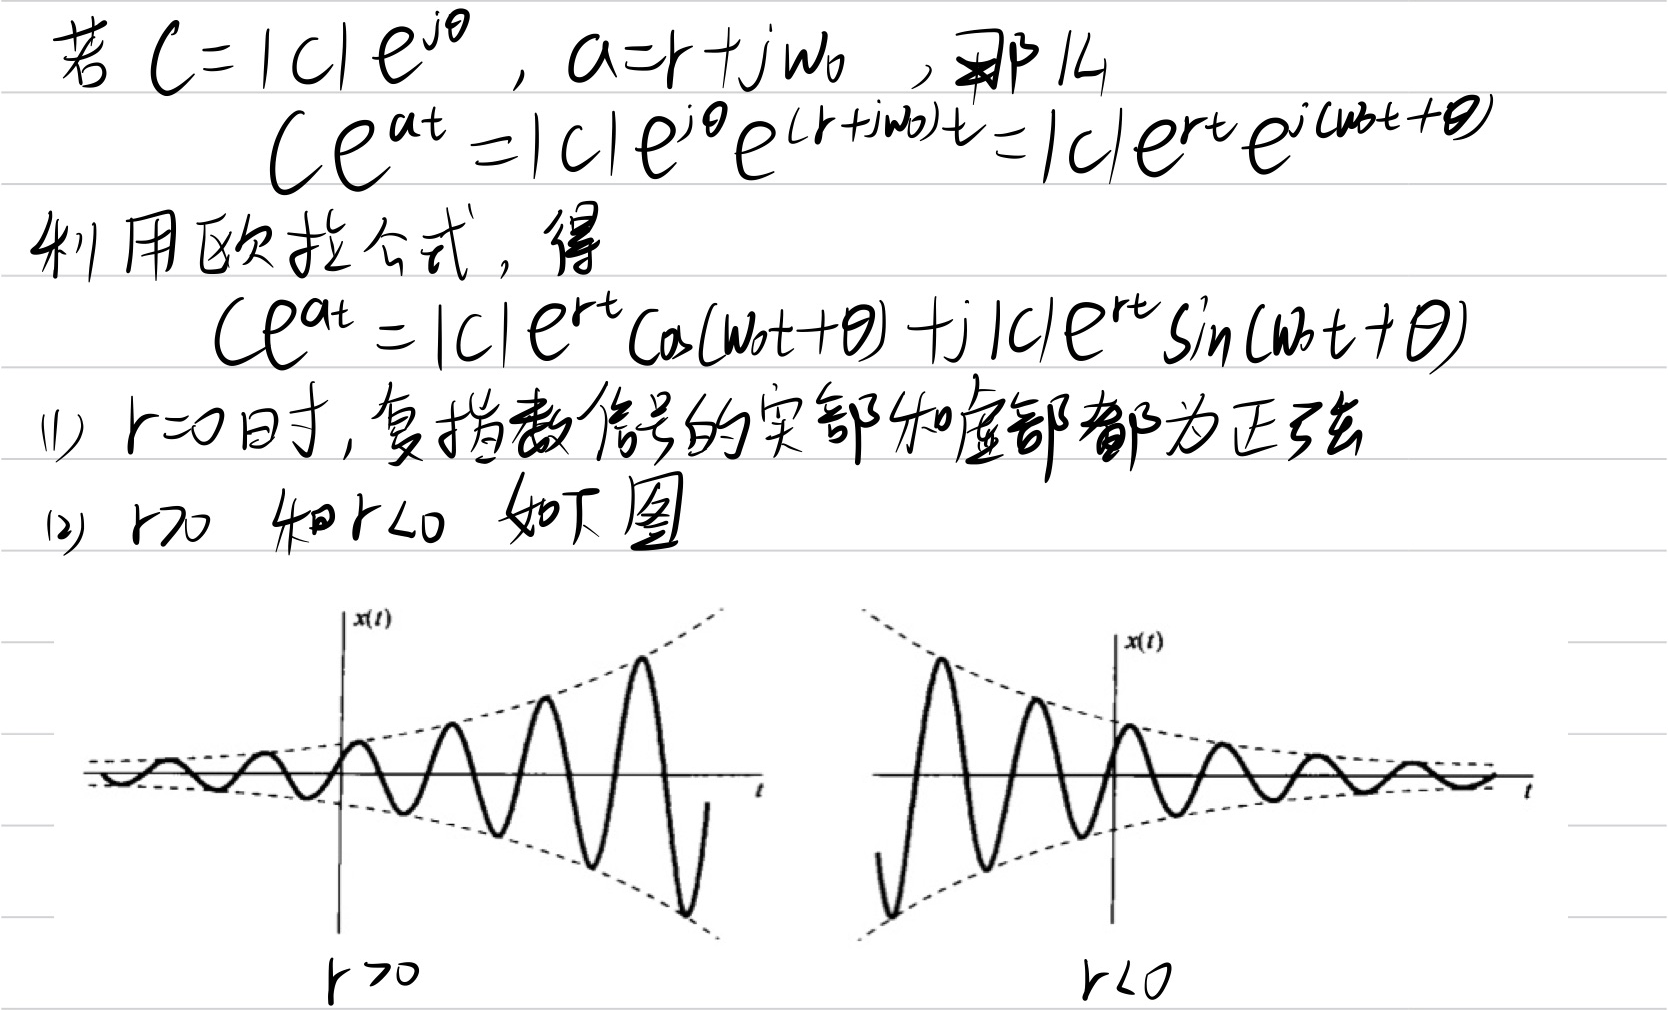 若 C=|C|e^{jθ}, a=r+jω₀, 那么
Ce^{at}=|C|e^{jθ}e^{(r+jω₀)t}=|C|e^{rt}e^{j(ω₀t+θ)}
利用欧拉公式, 得
Ce^{at}=|C|e^{rt}cos(ω₀t+θ)+j|C|e^{rt}sin(ω₀t+θ)
(1) r=0时, 复指数信号的实部和虚部都为正弦
(2) r>0 和 r<0 如下图
x(t)
t
x(t)
t
r>0
r<0